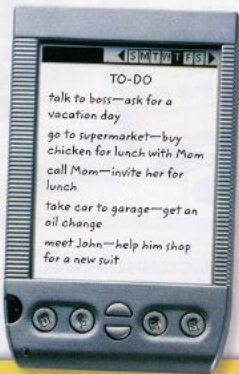 S M T W T F S
TO-DO
talk to boss—ask for a
vacation day
go to supermarket—buy
chicken for lunch with Mom
call Mom—invite her for
lunch
take car to garage—get an
oil change
meet John—help him shop
for a new suit